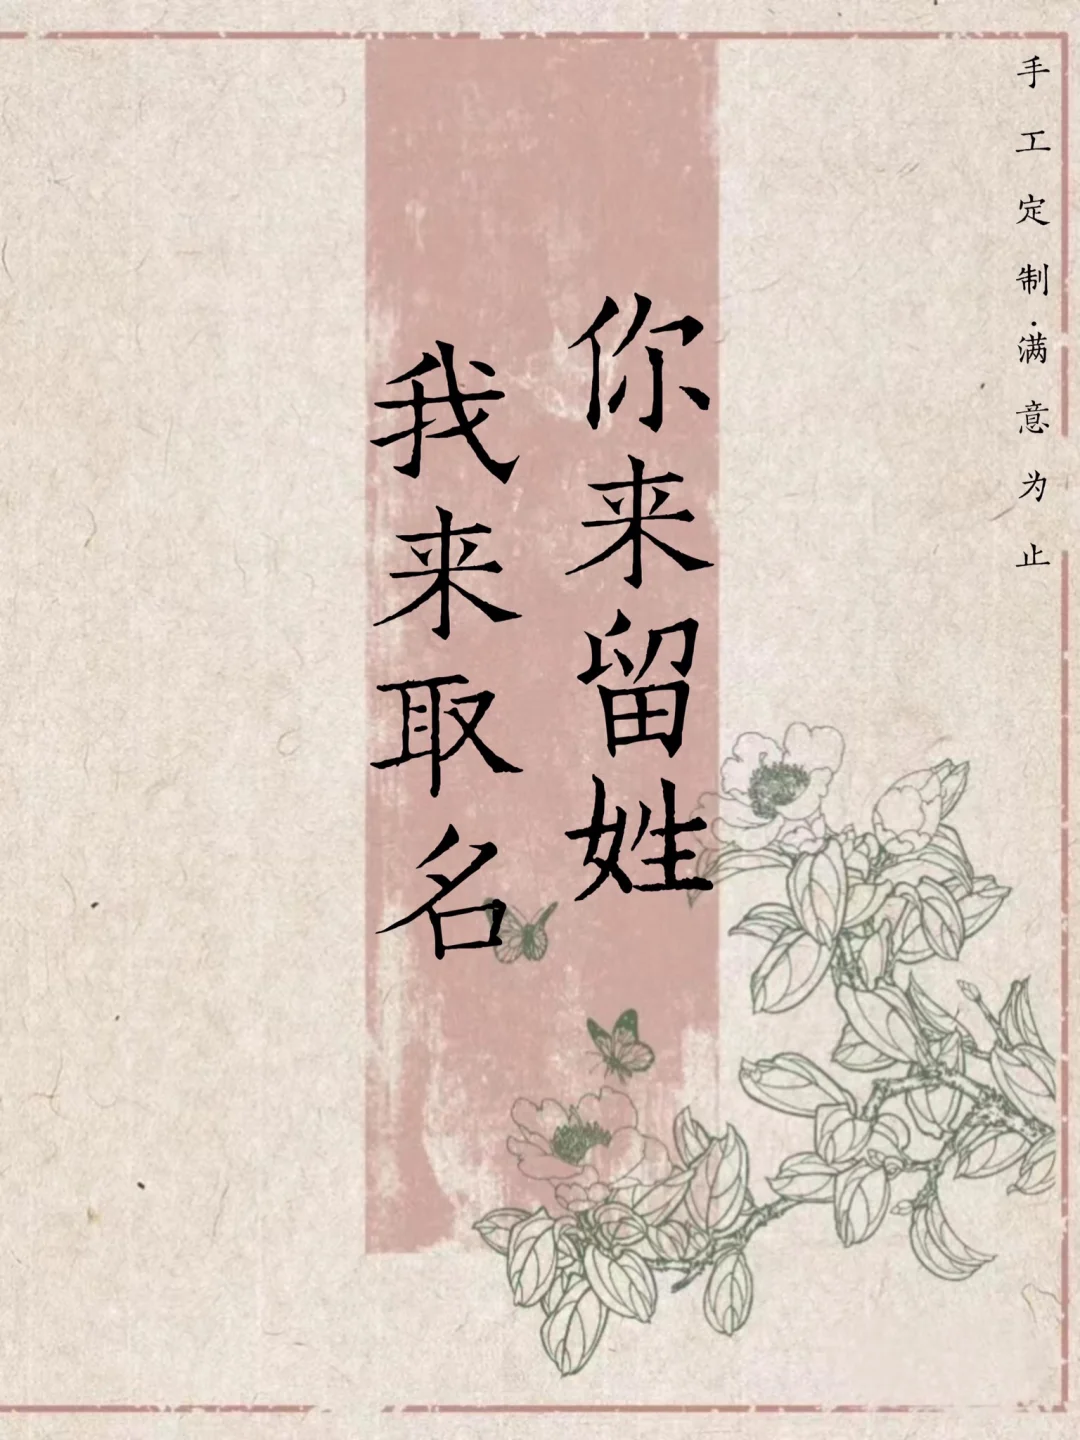 手工定制·满意为止
你来留姓
我来取名